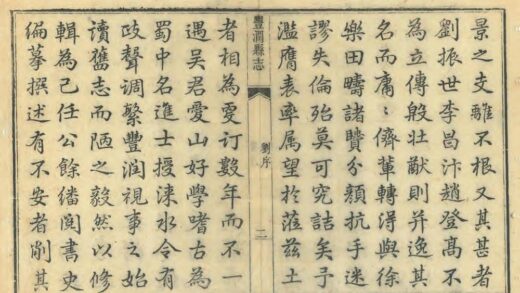 景之支離不根又其甚者
劉振世李昌汴趙登髙不
為立傳殷壯猷則并逸其
名而庸〻儕輩轉得與徐
樂田疇諸賢分顔抗手迷
謬失倫殆莫可究詰矣予
濫膺表率属望於莅茲土
豐潤縣志
劉序
二
者相為更訂數年而不一
遇吴君愛山好學嗜古為
蜀中名進士授淶水令有
政聲调繁豐润視事之始
讀舊志而陋之毅然以修
輯為己任公餘繙閲書史
編摹撰述有不安者削其